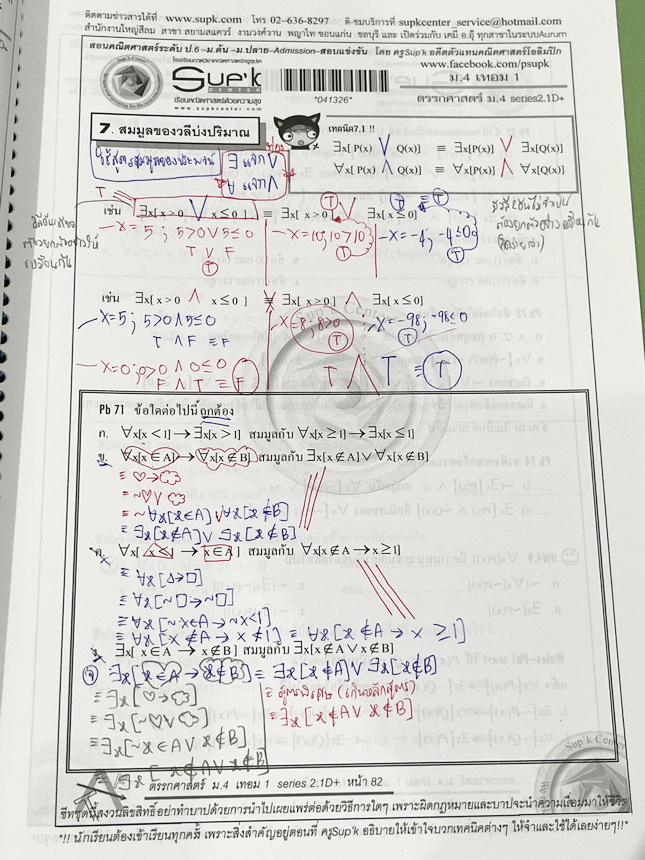 ติดตามข่าวสารได้ที่ www.supk.com โทร 02-636-8297 ติ-ชมบริการที่ supkcenter_service@hotmail.com
สำนักงานใหญ่สีลม สาขา สยามสแควร์ งามวงศ์วาน พญาไท ขอนแก่น ชลบุรี และ เปิดร่วมกับ เคมี อ.อุ๊ ทุกสาขาในระบบAurum
สอนคณิตศาสตร์ระดับ ป.6-ม.ต้น-ม.ปลาย-Admission-สอบแข่งขัน โดย ครูSup'k อดีตตัวแทนคณิตศาสตร์โอลิมปิก
www.facebook.com/psupk
Sup'k
CENTER
เรียนคณิตศาสตร์ด้วยความสุข
www.supkcenter.com
*041326*
ม.4 เทอม 1
ตรรกศาสตร์ ม.4 series2.1D+
7. สมมูลของวลีบ่งปริมาณ
เทคนิค7.1 !!
∃x[ P(x) ∨ Q(x)] ≡ ∃x[P(x)] ∨ ∃x[Q(x)]
∀x[ P(x) ∧ Q(x)] ≡ ∀x[P(x)] ∧ ∀x[Q(x)]
ใช้สูตรสมมูลของประพจน์
∃ แจก ∨
∀ แจก ∧
T
T
T ≡ T
เช่น ∃x[ x > 0 ∨ x ≤ 0 ] ≡ ∃x[ x > 0 ] ∨ ∃x[ x ≤ 0]
– x = 5 ; 5>0 ∨ 5≤0
T ∨ F
T
– x = 10, 10>10
T
– x = -4 ; -4 ≤ 0
T
เช่น ∃x[ x > 0 ∧ x ≤ 0 ] ≢ ∃x[ x > 0 ] ∧ ∃x[ x ≤ 0]
– x=5; 5>0 ∧ 5≤0
T ∧ F ≡ F
– x=8, 8>0
T
x = -98, -98≤0
T
– x=0; 0>0 ∧ 0≤0
F ∧ T ≡ F
T ∧ T ≡ T
Pb 71 ข้อใดต่อไปนี้ ถูกต้อง
ก. ∀x[x < 1] → ∃x[x > 1] สมมูลกับ ∀x[x ≥ 1] → ∃x[x ≤ 1]
ข. ∀x[x ∈ A] → ∀x[x ∉ B] สมมูลกับ ∃x[x ∉ A] ∨ ∀x[x ∉ B]
≡ ♡ →
≡ ~♡ ∨
≡ ~∀x[x∈A] ∨ ∀x[x∉B]
≡ ∃x[x∉A] ∨ ∃x[x∉B]
ค. ∀x[ x < 1 → x ∈ A ] สมมูลกับ ∀x[x ∉ A → x ≥ 1]
≡ ∀x[△→□]
≡ ∀x[~□→~△]
≡ ∀x[~x∈A → ~x<1]
≡ ∀x[x∉A → x≮1] ≡ ∀x[x∉A → x≥1]
ง. ∃x[ x ∈ A → x ∉ B] สมมูลกับ ∃x[x ∉ A ∨ x ∉ B]
ง ∃x[x∈A → x∉B] ≡ ∃x[x∉A] ∨ ∃x[x∉B]
≡ ∃x[♡→ ]
≡ ∃x[~♡∨ ]
≡ ∃x[~x∈A ∨ x∉B]
≡ ∃x[x∉A ∨ x∉B]
≡ ∃x[x∉A ∨ x∉B]
ตรรกศาสตร์ ม.4 เทอม 1 series 2.1D+ หน้า 82
ชีทชุดนี้สงวนลิขสิทธิ์อย่าทำบาปด้วยการนำไปเผยแพร่ต่อด้วยวิธีการใดๆ เพราะผิดกฎหมายและบาปจะนำความเสื่อมมาให้ชีวิต
*!! นักเรียนต้องเข้าเรียนทุกครั้ง เพราะสิ่งสำคัญอยู่ตอนที่ ครูSup'k อธิบายให้เข้าใจบวกเทคนิคต่างๆ ให้จำและใช้ได้เลยง่ายๆ!!*